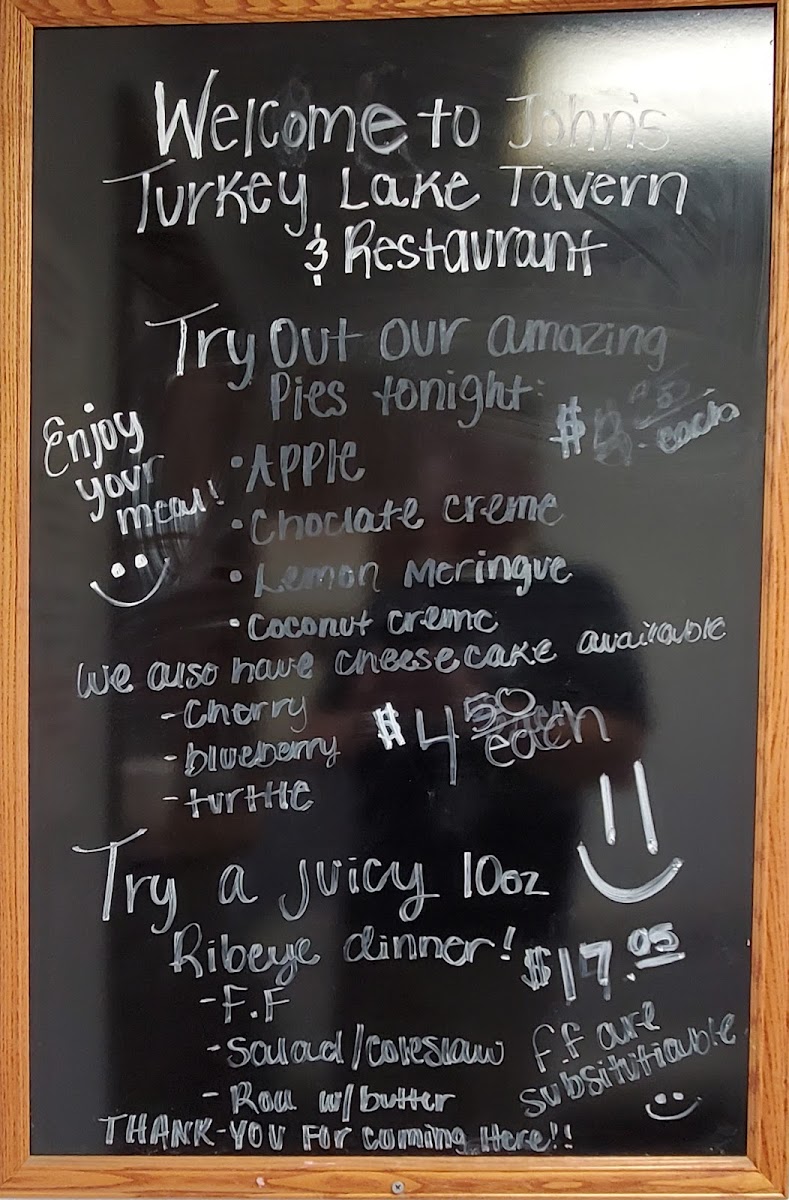 Welcome to John's
Turkey Lake Tavern
& Restaurant
Try Out our amazing
Pies tonight:
$ 50 each
Enjoy
your
meal!
• Apple
• Choclate creme
• Lemon Meringue
• Coconut creme
We also have cheesecake available
- Cherry
- blueberry
- turtle
$4 50
each
Try a juicy 10oz
Ribeye dinner!
$17.95
- F.F
- Salad/coleslaw
- Roll w/butter
f.f are
subsitutiable
THANK-YOU For coming Here!!